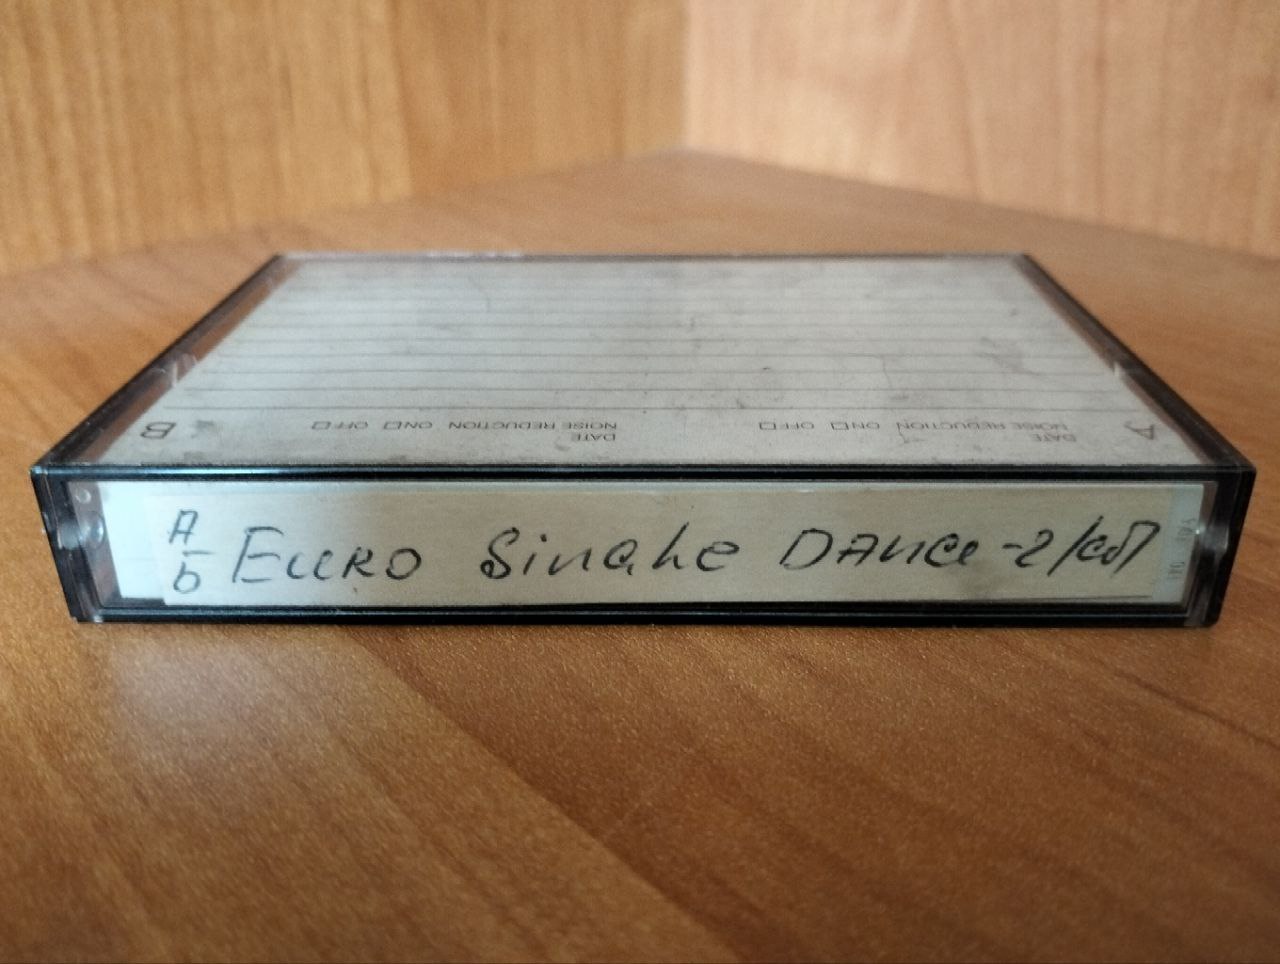 A
B
DATE
NOISE REDUCTION ON OFF
DATE
NOISE REDUCTION ON OFF
А
Б
EURO Single DANCE -2/сбП